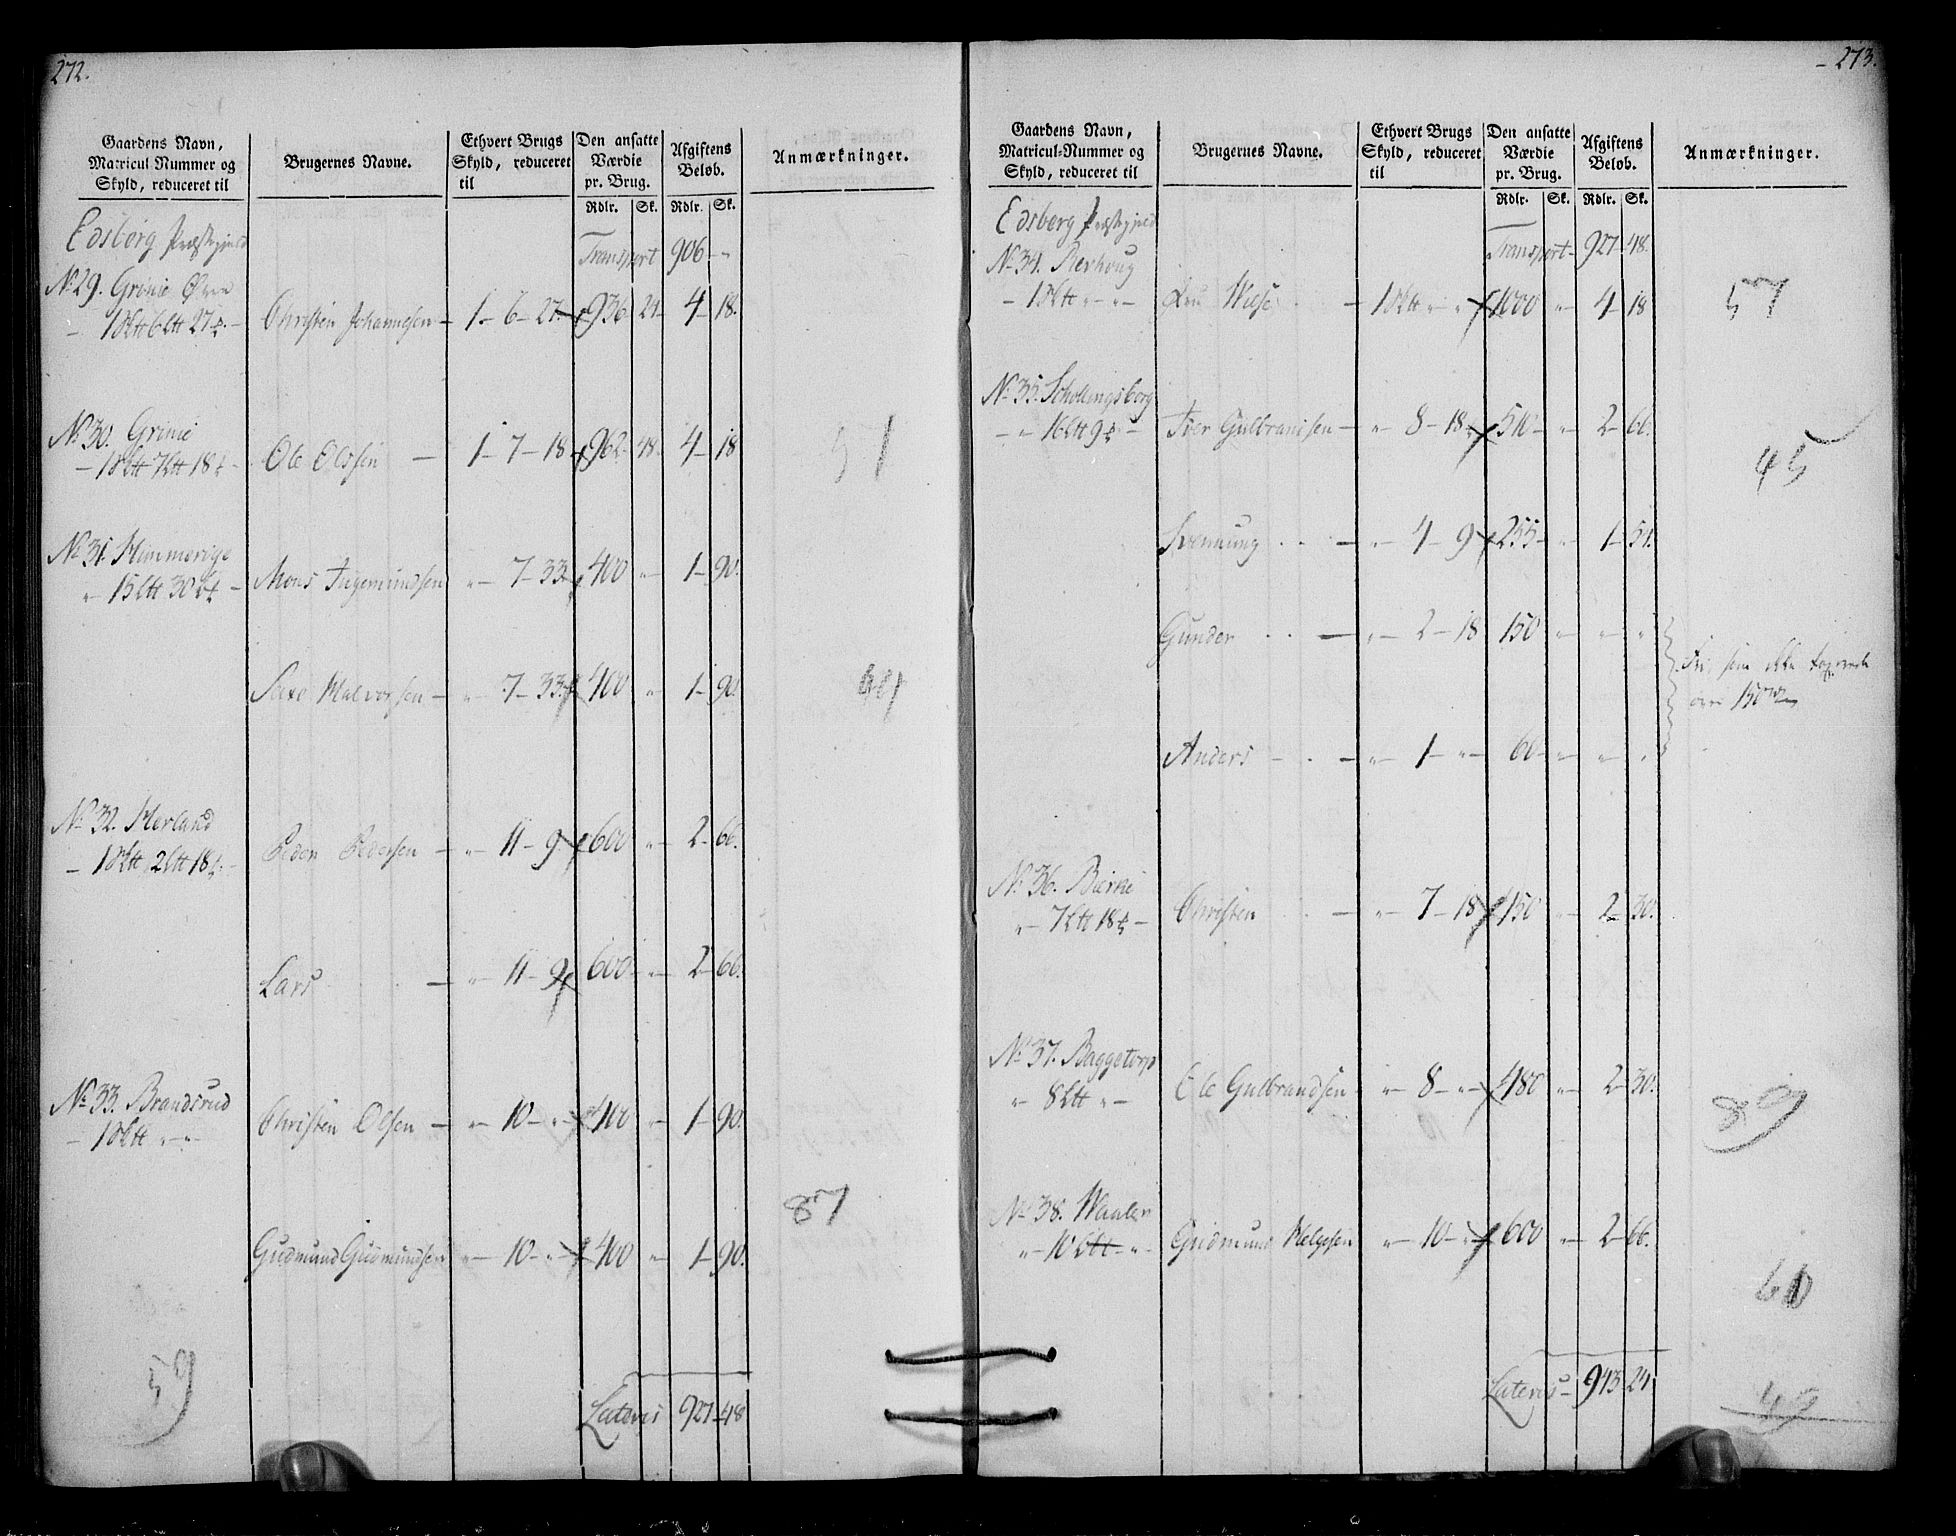 272.
Gaardens Navn,
Matricul-Nummer og
Skyld, reduceret til
Brugernes Navne.
Ethvert Brugs
Skyld, reduceret
til
Den ansatte
Værdie
pr. Brug.
Afgiftens
Beløb.
Anmærkninger.
Rdlr. Sk. Rdlr. Sk.
Edsberg Præstegield
Transport 906 - "
No 29. Grinie Øvre
- 1 6 27 - Christen Johannesen - 1 - 6 - 27 - 936 - 24 - 4 - 18.
No 30. Grinie
- 1 7 18 - Ole Olssen - 1 - 7 - 18 - 962 - 48 - 4 - 18
51
No 31. Himmerige
" 15 30 - Mons Ingemundsen " - 7 - 33 - 400 - " - 1 - 90.
Saxe Halvorsen - " - 7 - 33 400 - " - 1 - 90.
No 32. Herland
- 1 2 18 - Peder Pedersen - " - 11 - 9 600 - " - 2 - 66.
Lars - " - 11 - 9 600 - " - 2 - 66.
No 33. Brandsrud
- 1 " - " - Christen Olsen - " - 10 - " - 400 - " - 1 - 90.
Gudmund Gudmundsen " - 10 - " - 400 - " - 1 - 90.
87
59
Lateris 927 - 48
- 273.
Gaardens Navn,
Matricul-Nummer og
Skyld, reduceret til
Brugernes Navne.
Ethvert Brugs
Skyld, reduceret
til
Den ansatte
Værdie
pr. Brug.
Afgiftens
Beløb.
Anmærkninger.
Rdlr. Sk. Rdlr. Sk.
Edsberg Præstegield
Transport - 927 - 48.
No 34. Berhoug
- 1 " - " - Wiese - 1 " " 1000 " - 4 - 18
57
No 35. Schollingsberg
- " 16 9 - Iver Gulbrandsen - " - 8 - 18 510 - " - 2 - 66.
45
Svennung - - " - 4 - 9 255 - " - 1 - 54.
Gunder - " - 2 - 18 150 " " "
Fri som ikke
over 150
Anders - - " - 1 - " - 60 - " - " - "
No 36. Bierke
" - 7 18 - Christen - " - 7 - 18 450 - " - 2 - 30.
No 37. Baggetorp
" 8 " - Ole Gulbrandsen " - 8 - " - 480 - " - 2 - 30.
89
No 38. Waaler
" - 10 - " - Gudmund Helgesen " - 10 - " - 600 - " - 2 - 66.
Lateris - 943 - 24
49